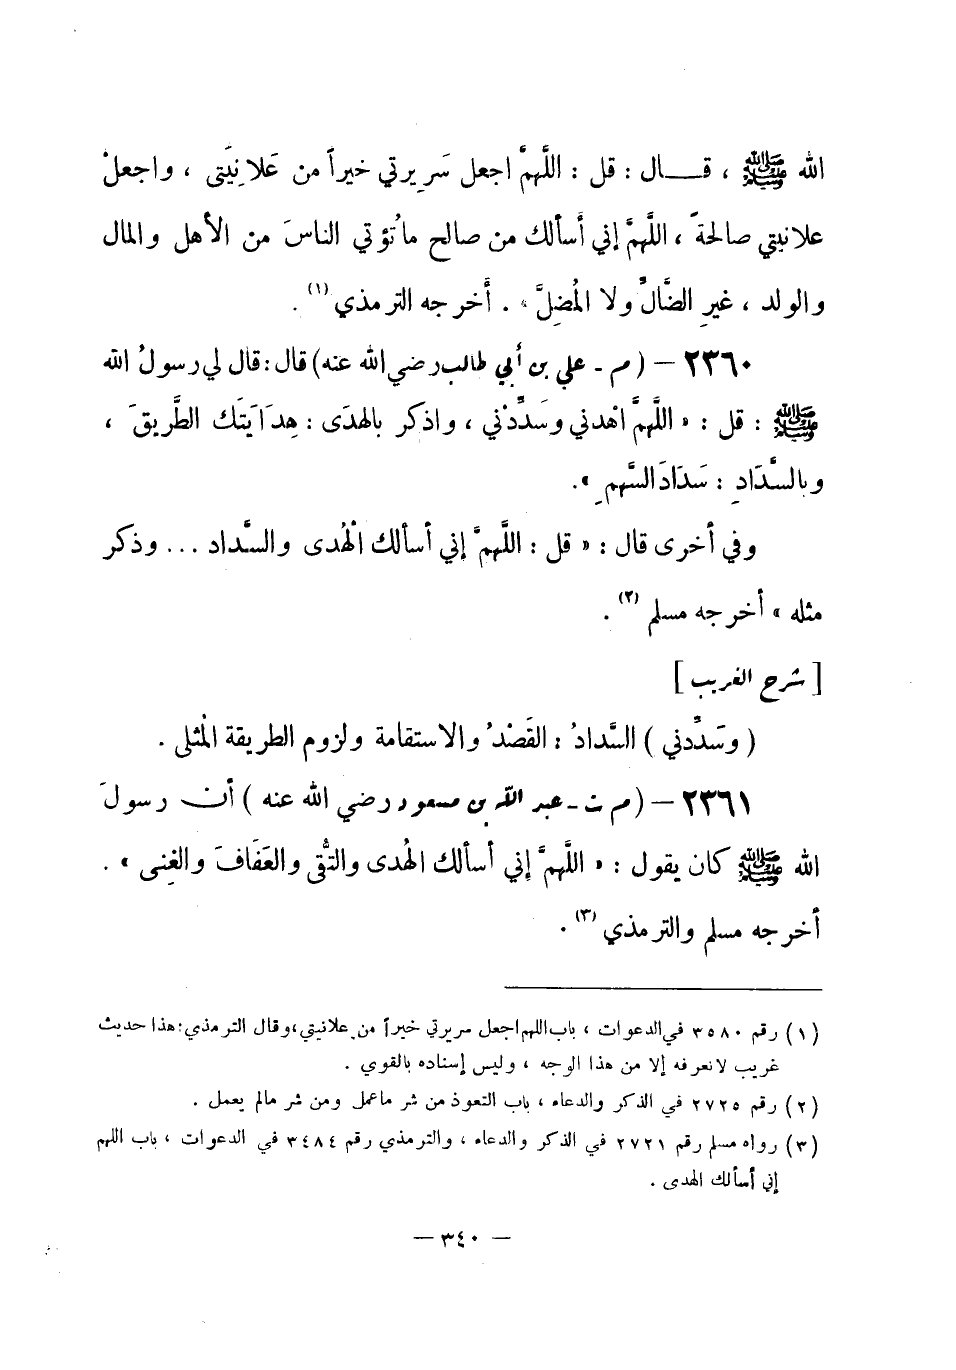 الله ﷺ ، قـــال : قل : اللَّهمَّ اجعل سَرِيرتي خيراً من عَلانِيَتي ، واجعلْ
علانيتي صالحةً ، اللَّهمَّ إني أَسألك من صالح ماتُؤتي الناسَ من الأهل والمال
والولد ، غيرِ الضَّالِّ ولا المُضِلَّ » . أَخرجه الترمذي (١) .
٢٣٦٠ – ( م - علي بن أبي طالب رضي الله عنه ) قال : قال لي رسولُ الله
ﷺ : قل : « اللَّهمَّ اهْدني وسَدِّدْني ، واذكر بالهدَى : هِدَايَتَك الطَّريقَ ،
وبالسَّدَادِ : سَدَادَ السَّهمِ » .
وفي أخرى قال : « قل : اللَّهمَّ إني أسألك الْهُدى والسَّداد ... وذكر
مثله » أخرجه مسلم (٢) .
[ شرح الغريب ]
( وسَدِّدني ) السَّدادُ : القَصْدُ والاستقامة ولزوم الطريقة المْثلى .
٢٣٦١ – ( م ت - عبد الله بن مسعود رضي الله عنه ) أن رسولَ
الله ﷺ كان يقول : « اللَّهمَّ إني أسألك الهُدى والتُّقى والعَفَافَ والغِنى » .
أخرجه مسلم والترمذي (٣) .
(١) رقم ٣٥٨٠ في الدعوات ، باب اللهم اجعل سريرتي خيراً من علانيتي ، وقال الترمذي : هذا حديث
غريب لا نعرفه إلا من هذا الوجه ، وليس إسناده بالقوي .
(٢) رقم ٢٧٢٥ في الذكر والدعاء ، باب التعوذ من شر ماعمل ومن شر مالم يعمل .
(٣) رواه مسلم رقم ٢٧٢١ في الذكر والدعاء ، والترمذي رقم ٣٤٨٤ في الدعوات ، باب اللهم
إني أسألك الهدى .
– ٣٤٠ –